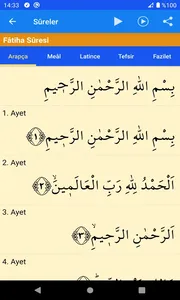 14:33 %100
Sûreler
Fâtiha Sûresi
Arapça Meâl Latince Tefsir Fazilet
بِسْمِ اللهِ الرَّحْمٰنِ الرَّحٖيمِ
1. Ayet
بِسْمِ اللهِ الرَّحْمٰنِ الرَّحٖيمِ ﴿١﴾
2. Ayet
اَلْحَمْدُ لِلهِ رَبِّ الْعَالَمٖينَۙ ﴿٢﴾
3. Ayet
اَلرَّحْمٰنِ الرَّحٖيمِۙ ﴿٣﴾
4. Ayet